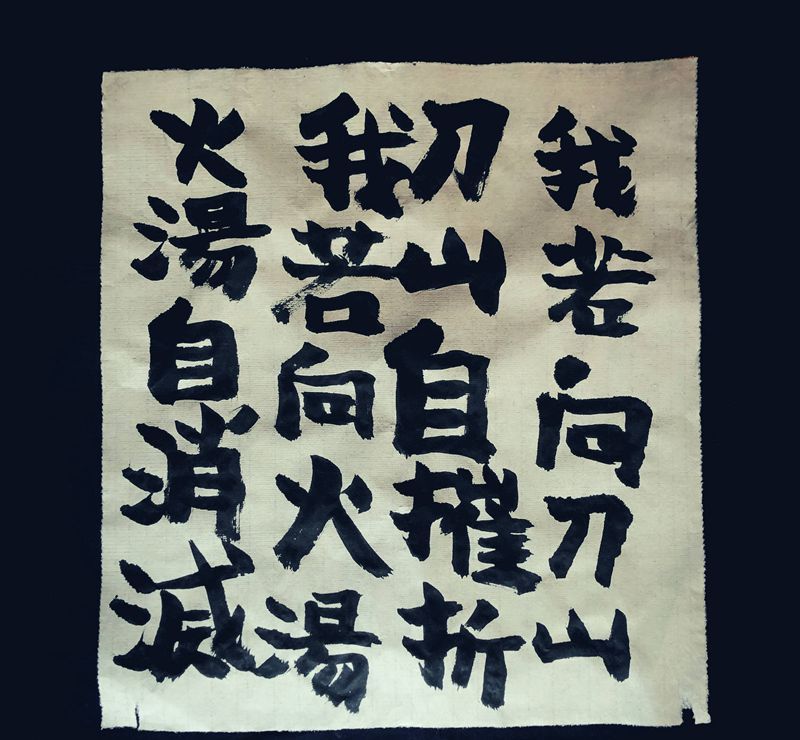 我若向刀山
刀山自摧折
我若向火湯
火湯自消滅